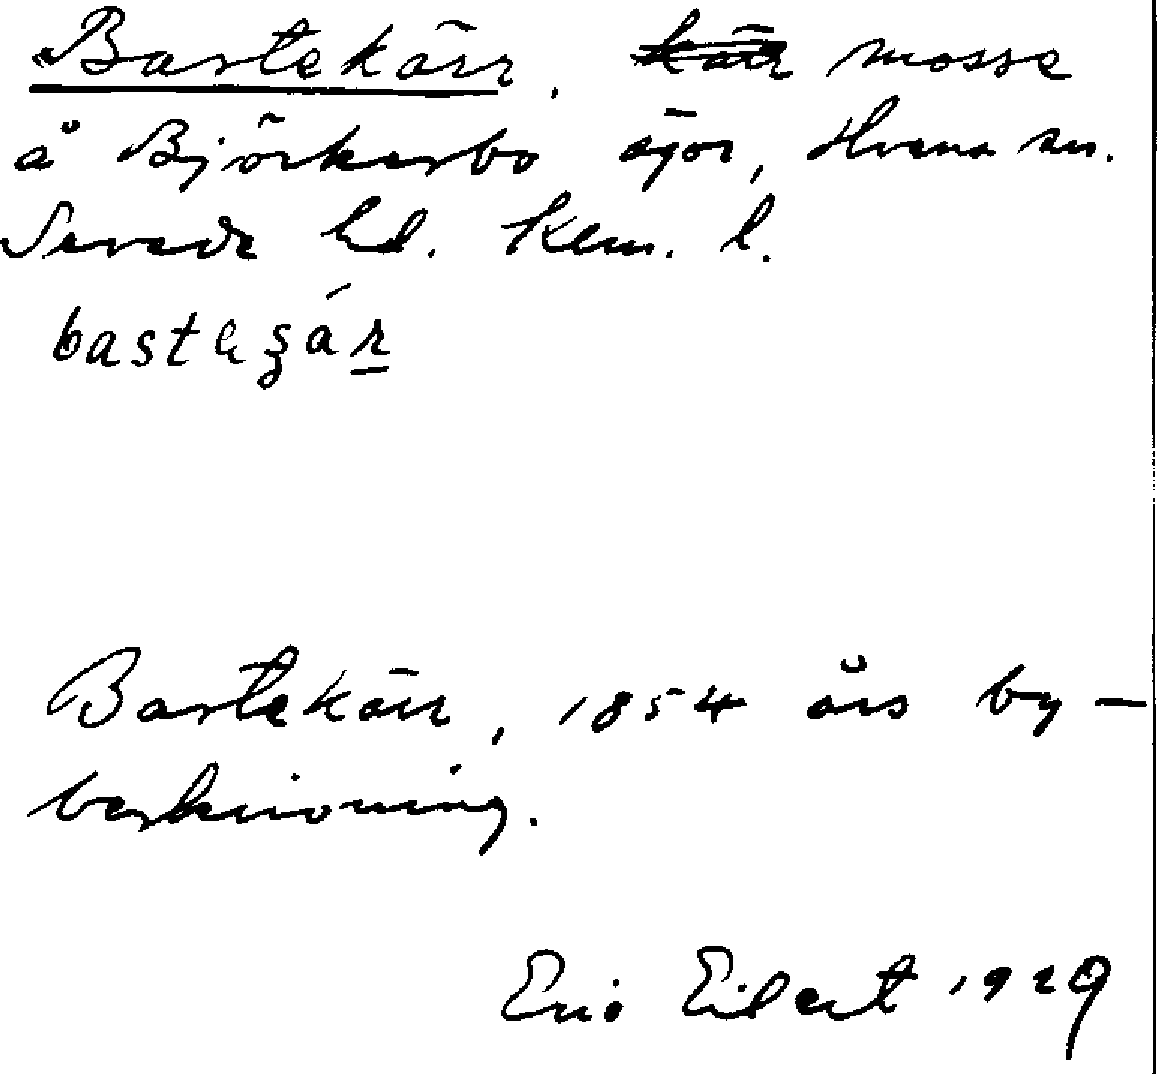 Bastekärr. kärr mosse
å Björkerbo ägor, Hvena sn.
Sevede hd. Kem. l.
bastaʂár
Bastekärr, 1854 års by-
beskrivning.
Eric Eilert 1929